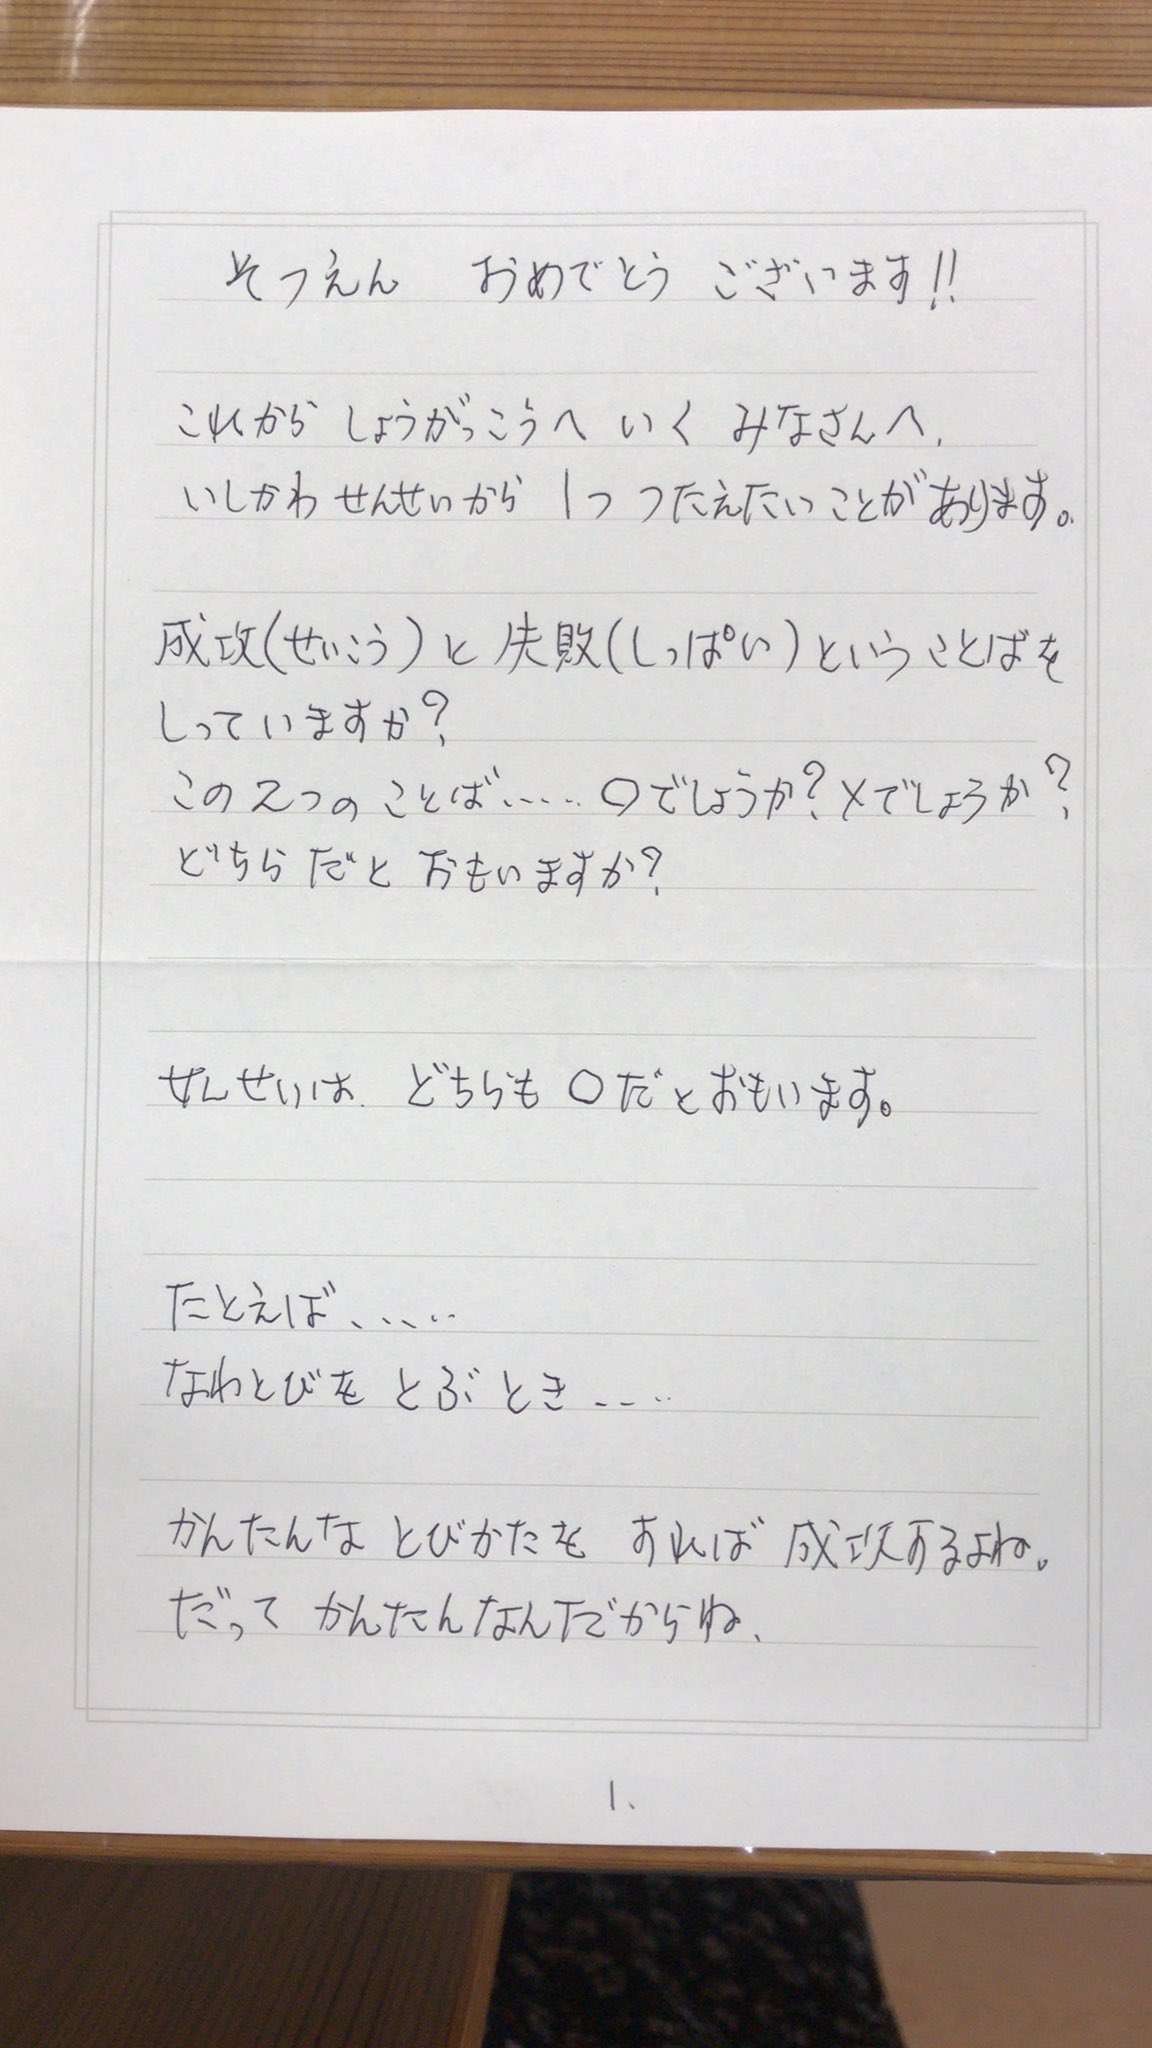 そつえん おめでとう ございます!!
これから しょうがっこうへ いく みなさんへ、
いしかわ せんせいから 1つ つたえたいことがあります。
成攻(せいこう)と 失敗(しっぱい)ということばを
しっていますか?
この2つの ことば、、、、、○でしょうか?×でしょうか?
どちらだと おもいますか?
せんせいは、どちらも ○だとおもいます。
たとえば、、、、、
なわとびを とぶとき、、、、
かんたんな とびかたを すれば 成攻するよね。
だって かんたんなんだからね、
1、